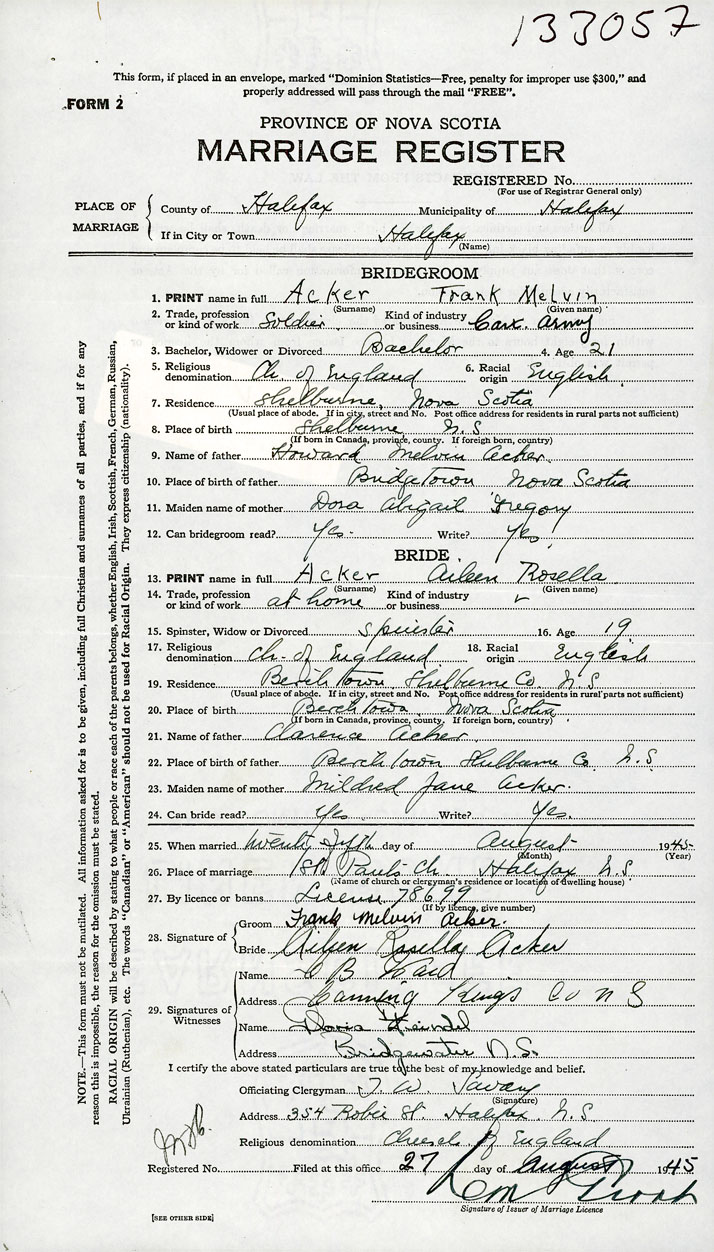 133057
This form, if placed in an envelope, marked "Dominion Statistics—Free, penalty for improper use $300," and
properly addressed will pass through the mail "FREE".
FORM 2
PROVINCE OF NOVA SCOTIA
MARRIAGE REGISTER
REGISTERED No.
(For use of Registrar General only)
PLACE OF MARRIAGE
County of Halifax Municipality of Halifax
If in City or Town Halifax
(Name)
BRIDEGROOM
1. PRINT name in full Acker Frank Melvin
(Surname) (Given name)
2. Trade, profession or kind of work Soldier Kind of industry or business Can. Army
3. Bachelor, Widower or Divorced Bachelor 4. Age 21
5. Religious denomination Ch of England 6. Racial origin English
7. Residence Shelburne, Nova Scotia
(Usual place of abode. If in city, street and No. Post office address for residents in rural parts not sufficient)
8. Place of birth Shelburne N.S
(If born in Canada, province, county. If foreign born, country)
9. Name of father Howard Melvin Acker
10. Place of birth of father BridgeTown Nova Scotia
11. Maiden name of mother Dora Abigail Gregory
12. Can bridegroom read? Yes. Write? Yes.
BRIDE
13. PRINT name in full Acker Aileen Rosella
(Surname) (Given name)
14. Trade, profession or kind of work at home Kind of industry or business
15. Spinster, Widow or Divorced Spinster 16. Age 19
17. Religious denomination Ch. of England 18. Racial origin English
19. Residence Berch Town Shelburne Co. N.S
(Usual place of abode. If in city, street and No. Post office address for residents in rural parts not sufficient)
20. Place of birth Berch Town Nova Scotia
(If born in Canada, province, county. If foreign born, country)
21. Name of father Clarence Acker
22. Place of birth of father Berch Town Shelburne Co N.S
23. Maiden name of mother Mildred Jane Acker.
24. Can bride read? Yes Write? Yes.
25. When married twenty fifth day of August 1945
(Month) (Year)
26. Place of marriage St Paul's Ch Halifax N.S
(Name of church or clergyman's residence or location of dwelling house)
27. By licence or banns License 78699
(If by licence, give number)
28. Signature of
Groom Frank Melvin Acker.
Bride Aileen Rosella Acker
29. Signatures of Witnesses
Name C B Ward
Address Canning Kings Co N S
Name
Address Bridgewater N.S.
I certify the above stated particulars are true to the best of my knowledge and belief.
Officiating Clergyman T. W. Savary
(Signature)
Address 354 Robie St. Halifax N.S
Religious denomination Church of England
Registered No. Filed at this office 27 day of August 1945
Signature of Issuer of Marriage Licence
[SEE OTHER SIDE]
NOTE.—This form must not be mutilated. All information asked for is to be given, including full Christian and surnames of all parties, and if for any
reason this is impossible, the reason for the omission must be stated.
RACIAL ORIGIN will be described by stating to what people or race each of the parents belongs, whether English, Irish, Scottish, French, German, Russian,
Ukrainian (Ruthenian), etc. The words "Canadian" or "American" should not be used for Racial Origin. They express citizenship (nationality).